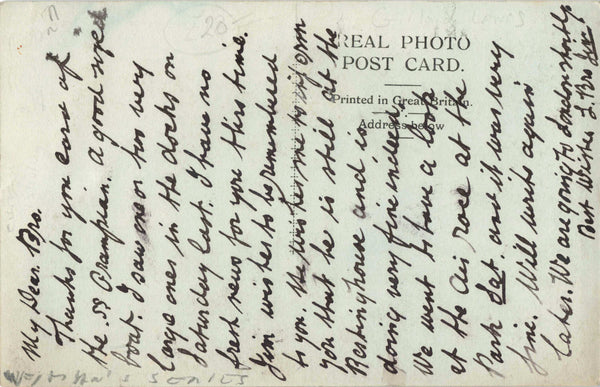 My Dear Bro.
Thanks for your card of
the SS Grampian. A good sized
boat. I saw one or two very
large ones in the docks on
Saturday last. I have no
fresh news for you this time.
Jim wishes to be remembered
to you. He wishes me to inform
you that he is still at the
Resting house and is
doing very fine indeed.
We went to have a look
at the Air race at the
Park Sat. and it was very
fine. Will write again
later. We are going to London shortly
Best Wishes J. Bro
REAL PHOTO
POST CARD.
Printed in Great Britain.
Address below
£20
WEYMAN'S SERIES